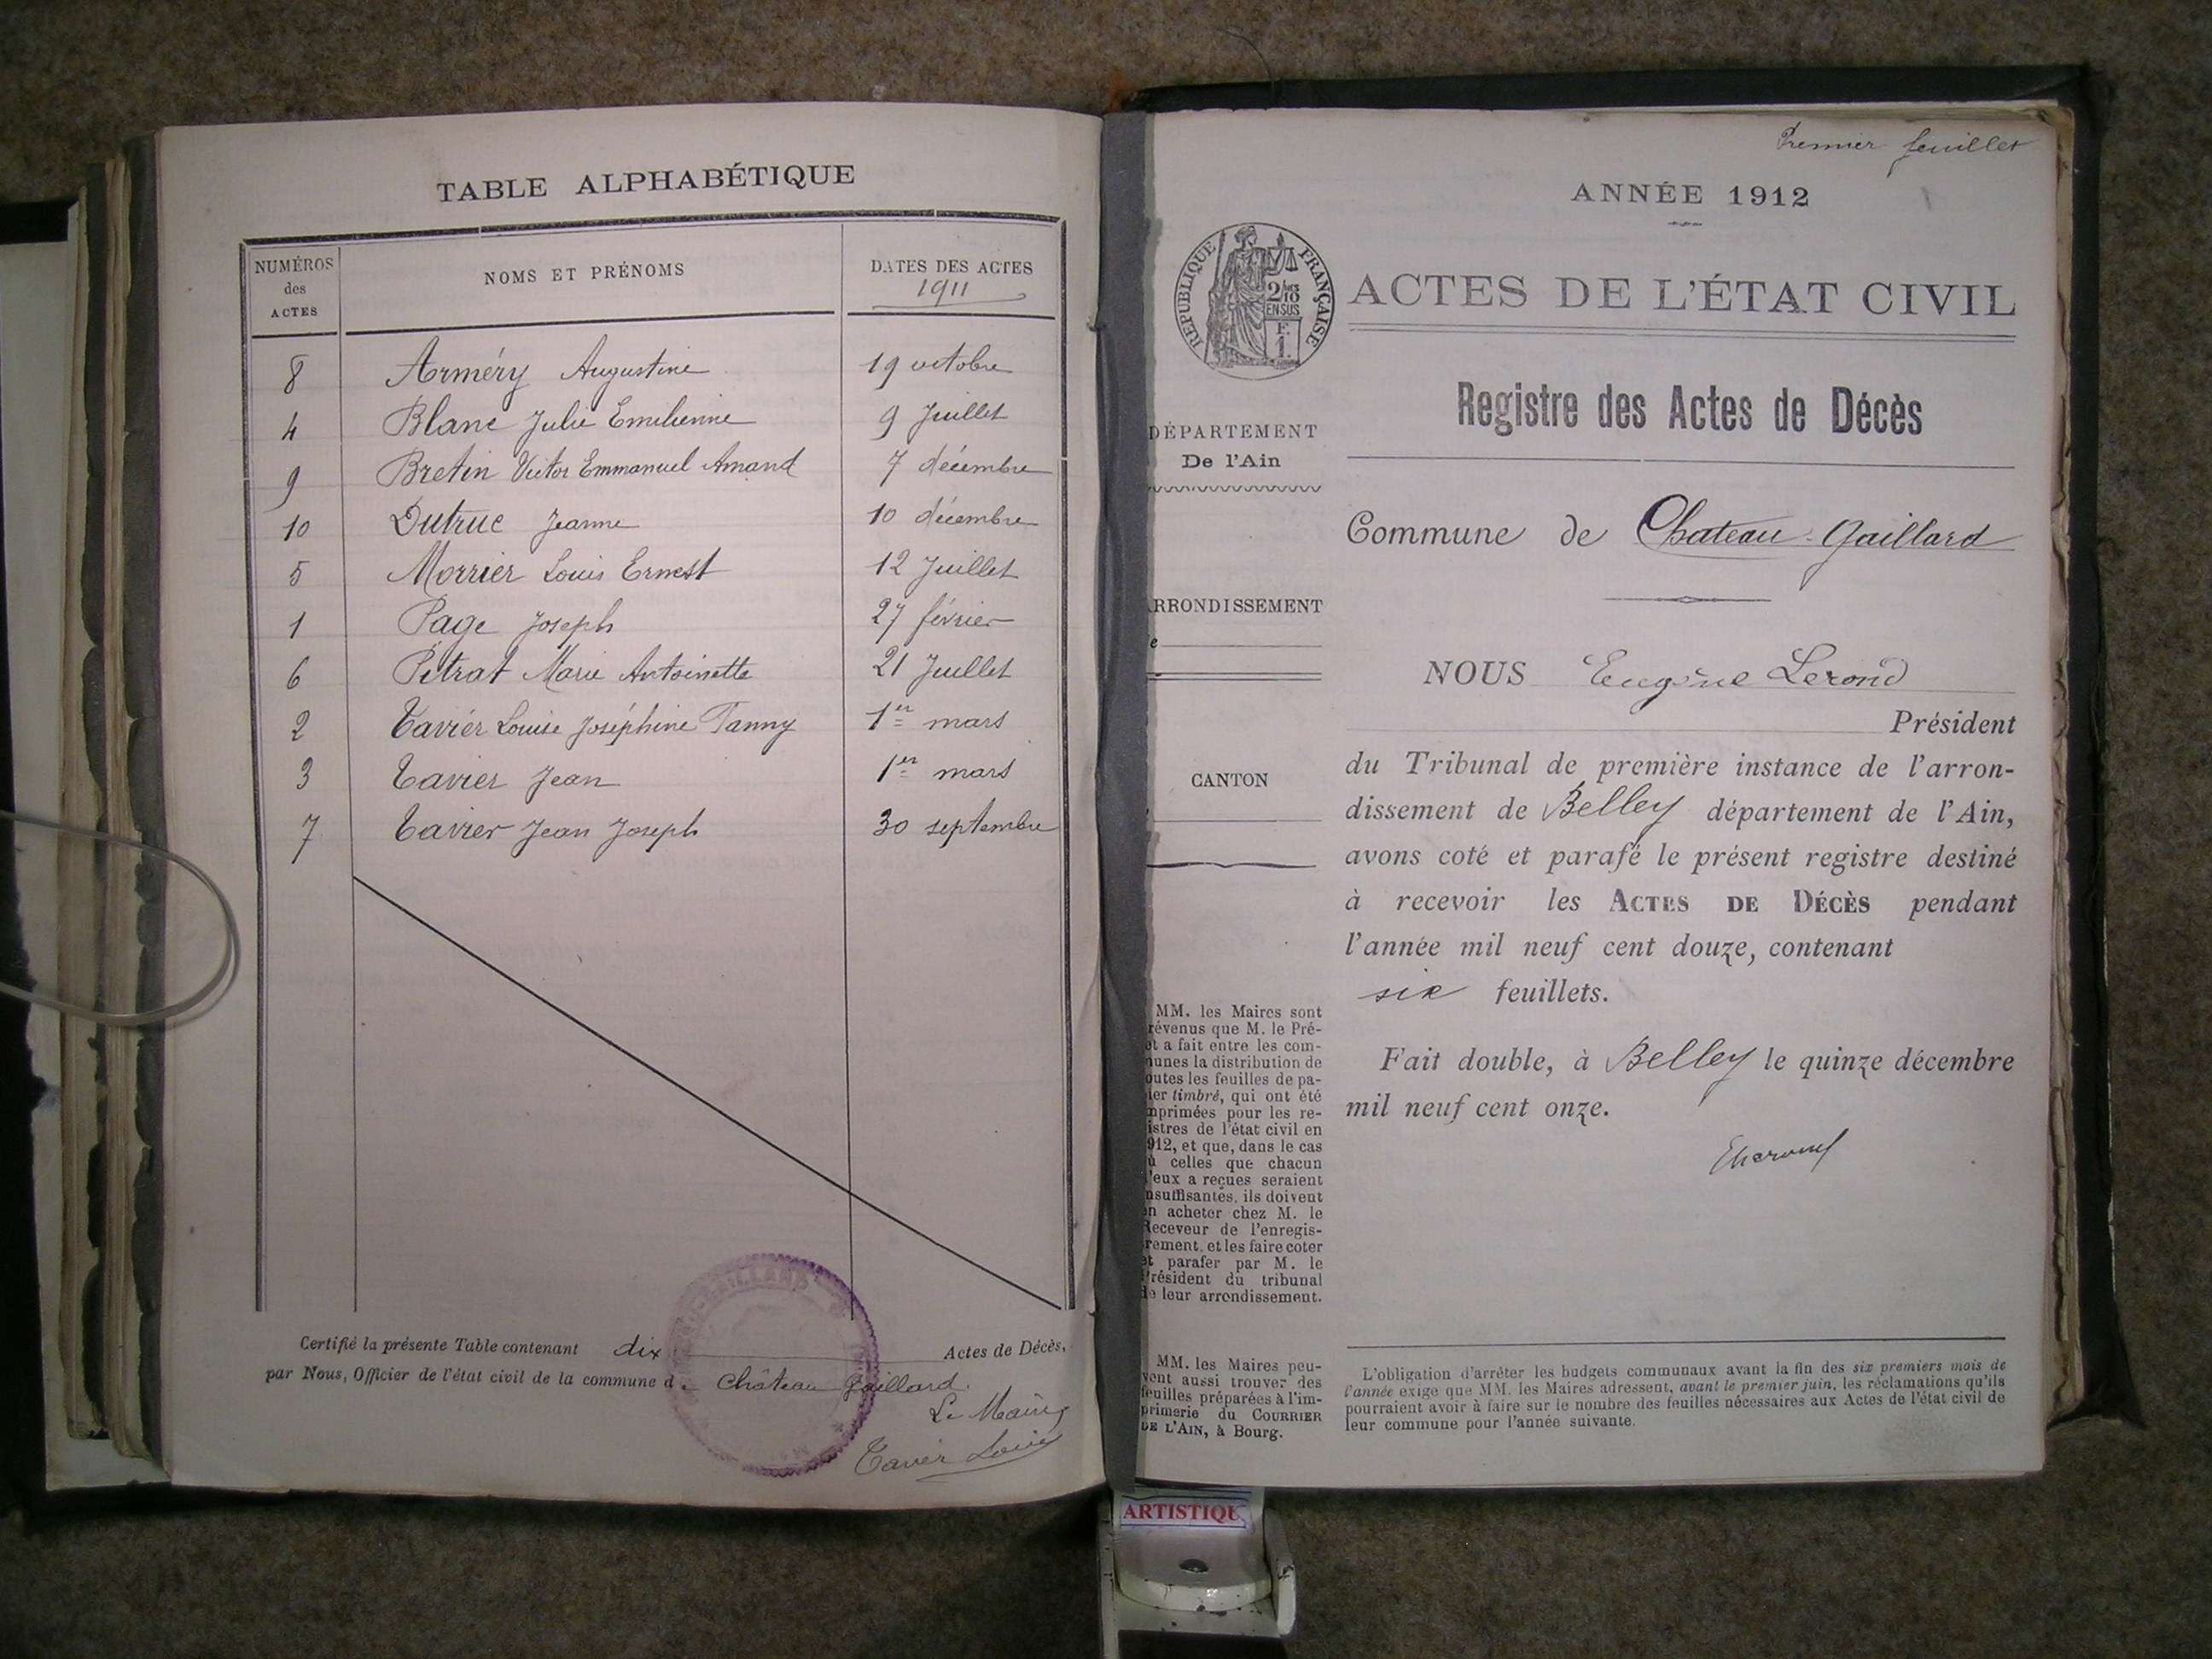 TABLE ALPHABÉTIQUE
NUMÉROS des ACTES
NOMS ET PRÉNOMS
DATES DES ACTES
1911
8 Arméry Augustine 19 octobre
4 Blanc Julie Emilienne 9 Juillet
9 Bretin Victor Emmanuel Amand 7 décembre
10 Dutruc Jeanne 10 décembre
5 Morrier Louis Ernest 12 Juillet
1 Page Joseph 27 février
6 Pétrat Marie Antoinette 21 Juillet
2 Tavier Louise Joséphine Fanny 1er mars
3 Tavier Jean 1er mars
7 Tavier Jean Joseph 30 septembre
Certifié la présente Table contenant dix Actes de Décès,
par Nous, Officier de l'état civil de la commune de Château Gaillard.
Le Maire,
Tavier Louis
Premier feuillet
ANNÉE 1912
RÉPUBLIQUE FRANÇAISE
2/10
EN SUS
F.
1.
ACTES DE L'ÉTAT CIVIL
Registre des Actes de Décès
DÉPARTEMENT
De l'Ain
Commune de Chateau-Gaillard
ARRONDISSEMENT
NOUS Eugène Lerond
Président
du Tribunal de première instance de l'arron-
dissement de Belley département de l'Ain,
avons coté et parafé le présent registre destiné
à recevoir les ACTES DE DÉCÈS pendant
l'année mil neuf cent douze, contenant
six feuillets.
Fait double, à Belley le quinze décembre
mil neuf cent onze.
CANTON
MM. les Maires sont
révenus que M. le Pré-
et a fait entre les com-
munes la distribution de
outes les feuilles de pa-
ier timbré, qui ont été
mprimées pour les re-
istres de l'état civil en
912, et que, dans le cas
ù celles que chacun
d'eux a reçues seraient
nsuffisantes, ils doivent
en acheter chez M. le
Receveur de l'enregis-
rement, et les faire coter
et parafer par M. le
Président du tribunal
de leur arrondissement.
MM. les Maires peu-
vent aussi trouver des
feuilles préparées à l'im-
primerie du COURRIER
DE L'AIN, à Bourg.
L'obligation d'arrêter les budgets communaux avant la fin des six premiers mois de
l'année exige que MM. les Maires adressent, avant le premier juin, les réclamations qu'ils
pourraient avoir à faire sur le nombre des feuilles nécessaires aux Actes de l'état civil de
leur commune pour l'année suivante.
ARTISTIQU